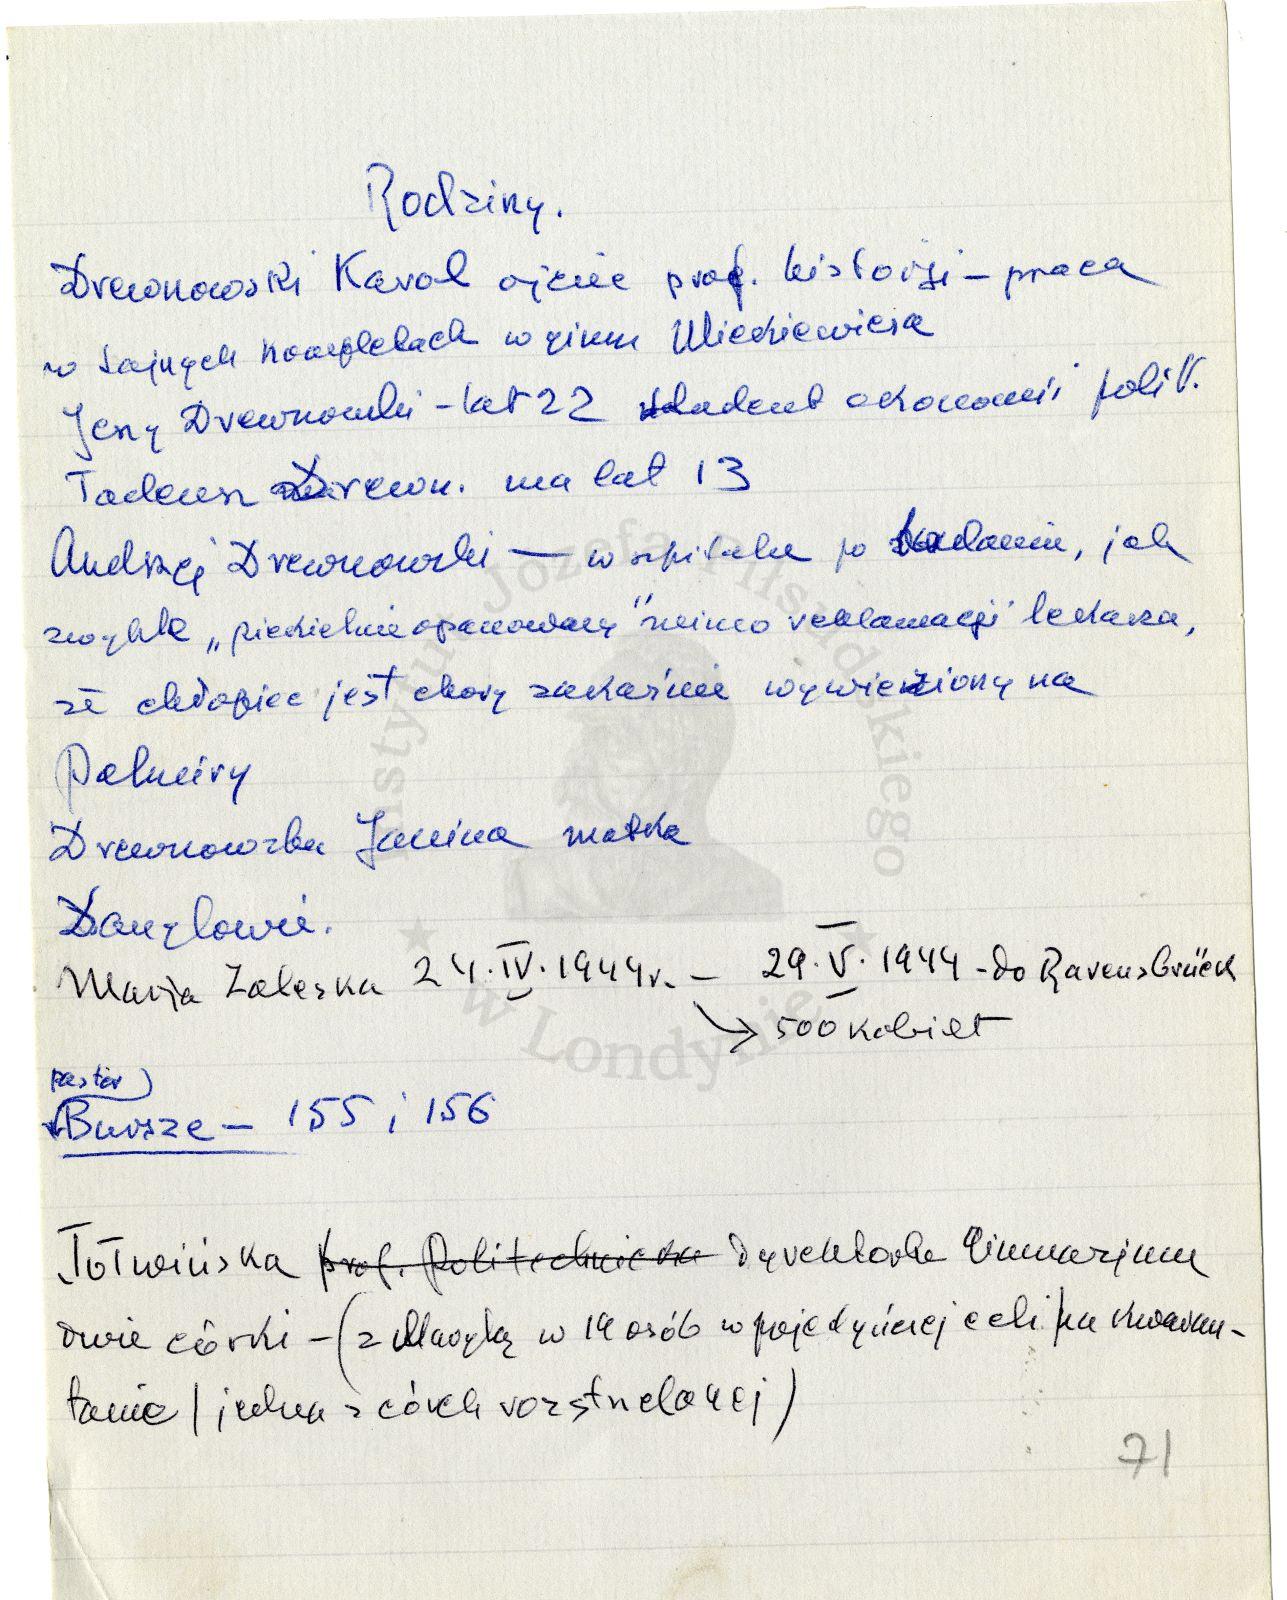 Rodziny.
Drewnowski Karol ojciec prof. historji – praca
w tajnych kompletach w gimn Mickiewicza
Jerzy Drewnowski – lat 22 student ekonomii polit.
Tadeusz Drewn. ma lat 13
Andrzej Drewnowski — w szpitalu po badaniu, jak
zwykle „piekielnie opanowany" mimo reklamacji lekarza,
że chłopiec jest chory zakaźnie wywieziony na
Palmiry
Drewnowska Janina matka
Danyłowie.
Marja Zaleska 24.IV.1944r. – 29.V.1944 – do Ravensbrück
→ 500 kobiet
pastor
Bursze – 155 i 156
Tołwińska prof. Politechnicka dyrektorka Gimnazjum
dwie córki – (z Marylką w 14 osób w pojedyńczej celi na kwaran-
tanie / jedna z córek rozstrzelanej)
71
Instytut Józefa Piłsudskiego
w Londynie